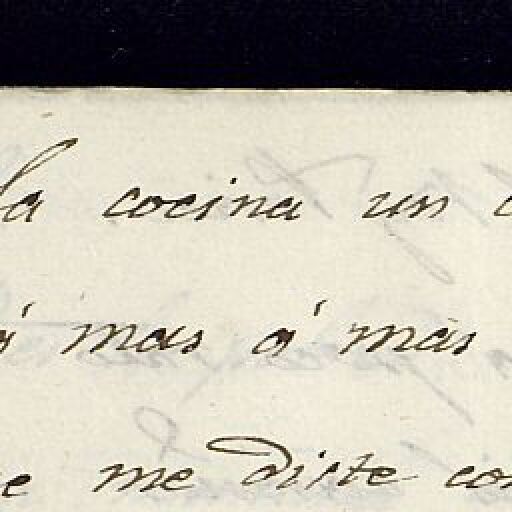 la cocina un
á mas á mas
me dicte con